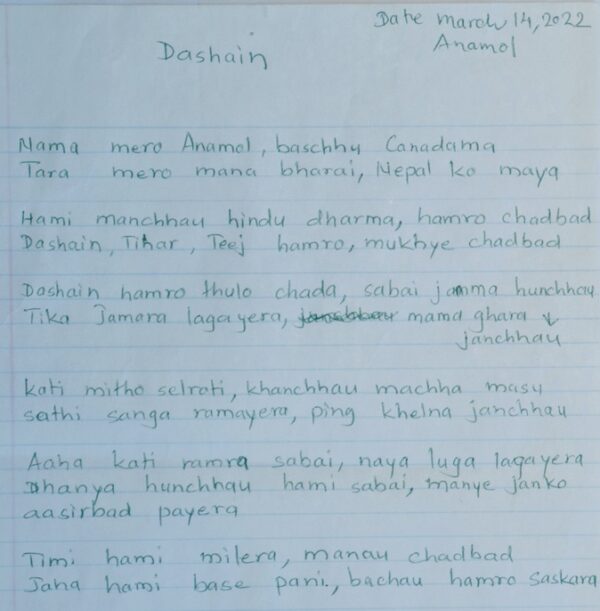 Date march 14, 2022
Anamol
Dashain
Nama mero Anamol, baschhu Canadama
Tara mero mana bharai, Nepal ko maya
Hami manchhau hindu dharma, hamro chadbad
Dashain, Tihar, Teej hamro, mukhye chadbad
Dashain hamro thulo chada, sabai jamma hunchhau
Tika Jamara lagayera, mama ghara
janchhau
kati mitho selroti, khanchhau machha masu
sathi sanga ramayera, ping khelna janchhau
Aaha kati ramra sabai, naya luga lagayera
Dhanya hunchhau hami sabai, manye janko
aasirbad payera
Timi hami milera, manau chadbad
Jaha hami base pani, bachau hamro saskara